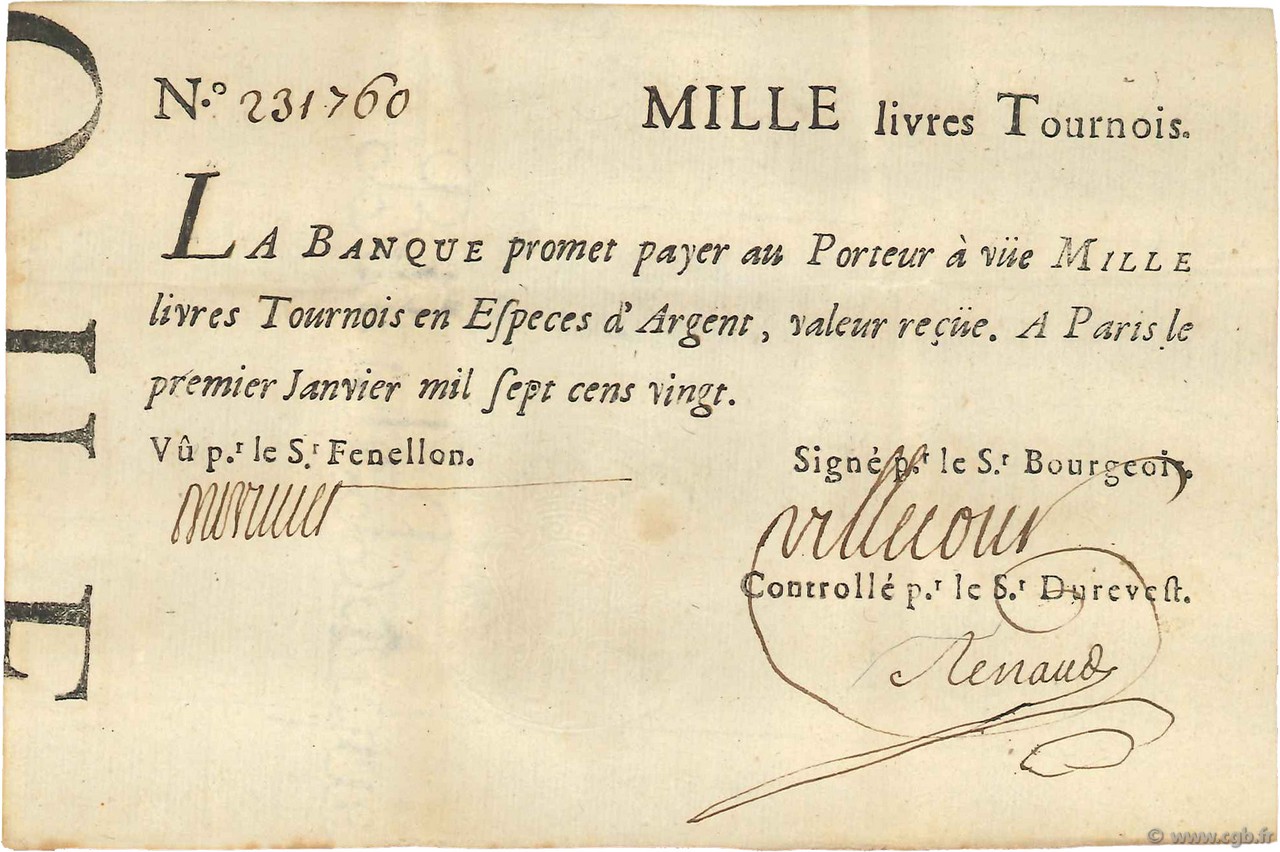 N.º 231760 MILLE livres Tournois.
LA BANQUE promet payer au Porteur à vüe MILLE
livres Tournois en Eſpeces d'Argent, valeur reçüe. A Paris le
premier Janvier mil ſept cens vingt.
Vû p.r le S.r Fenellon.
Signé p.r le S.r Bourgeois.
villecour
Controllé p.r le S.r Durevest.
Renaud
© www.cgb.fr